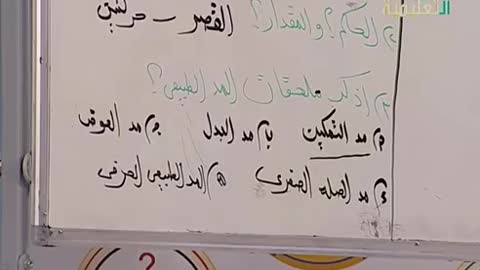 التعليمية
الحكم؟ والمقدار؟ القصر - حركتين
اذكر ملحقات المد الطبيعي؟
مد التمكين ب/ مد البدل ج/ مد العوض
د/ مد الصلة الصغرى ه/ المد الطبيعي الحرفي
?